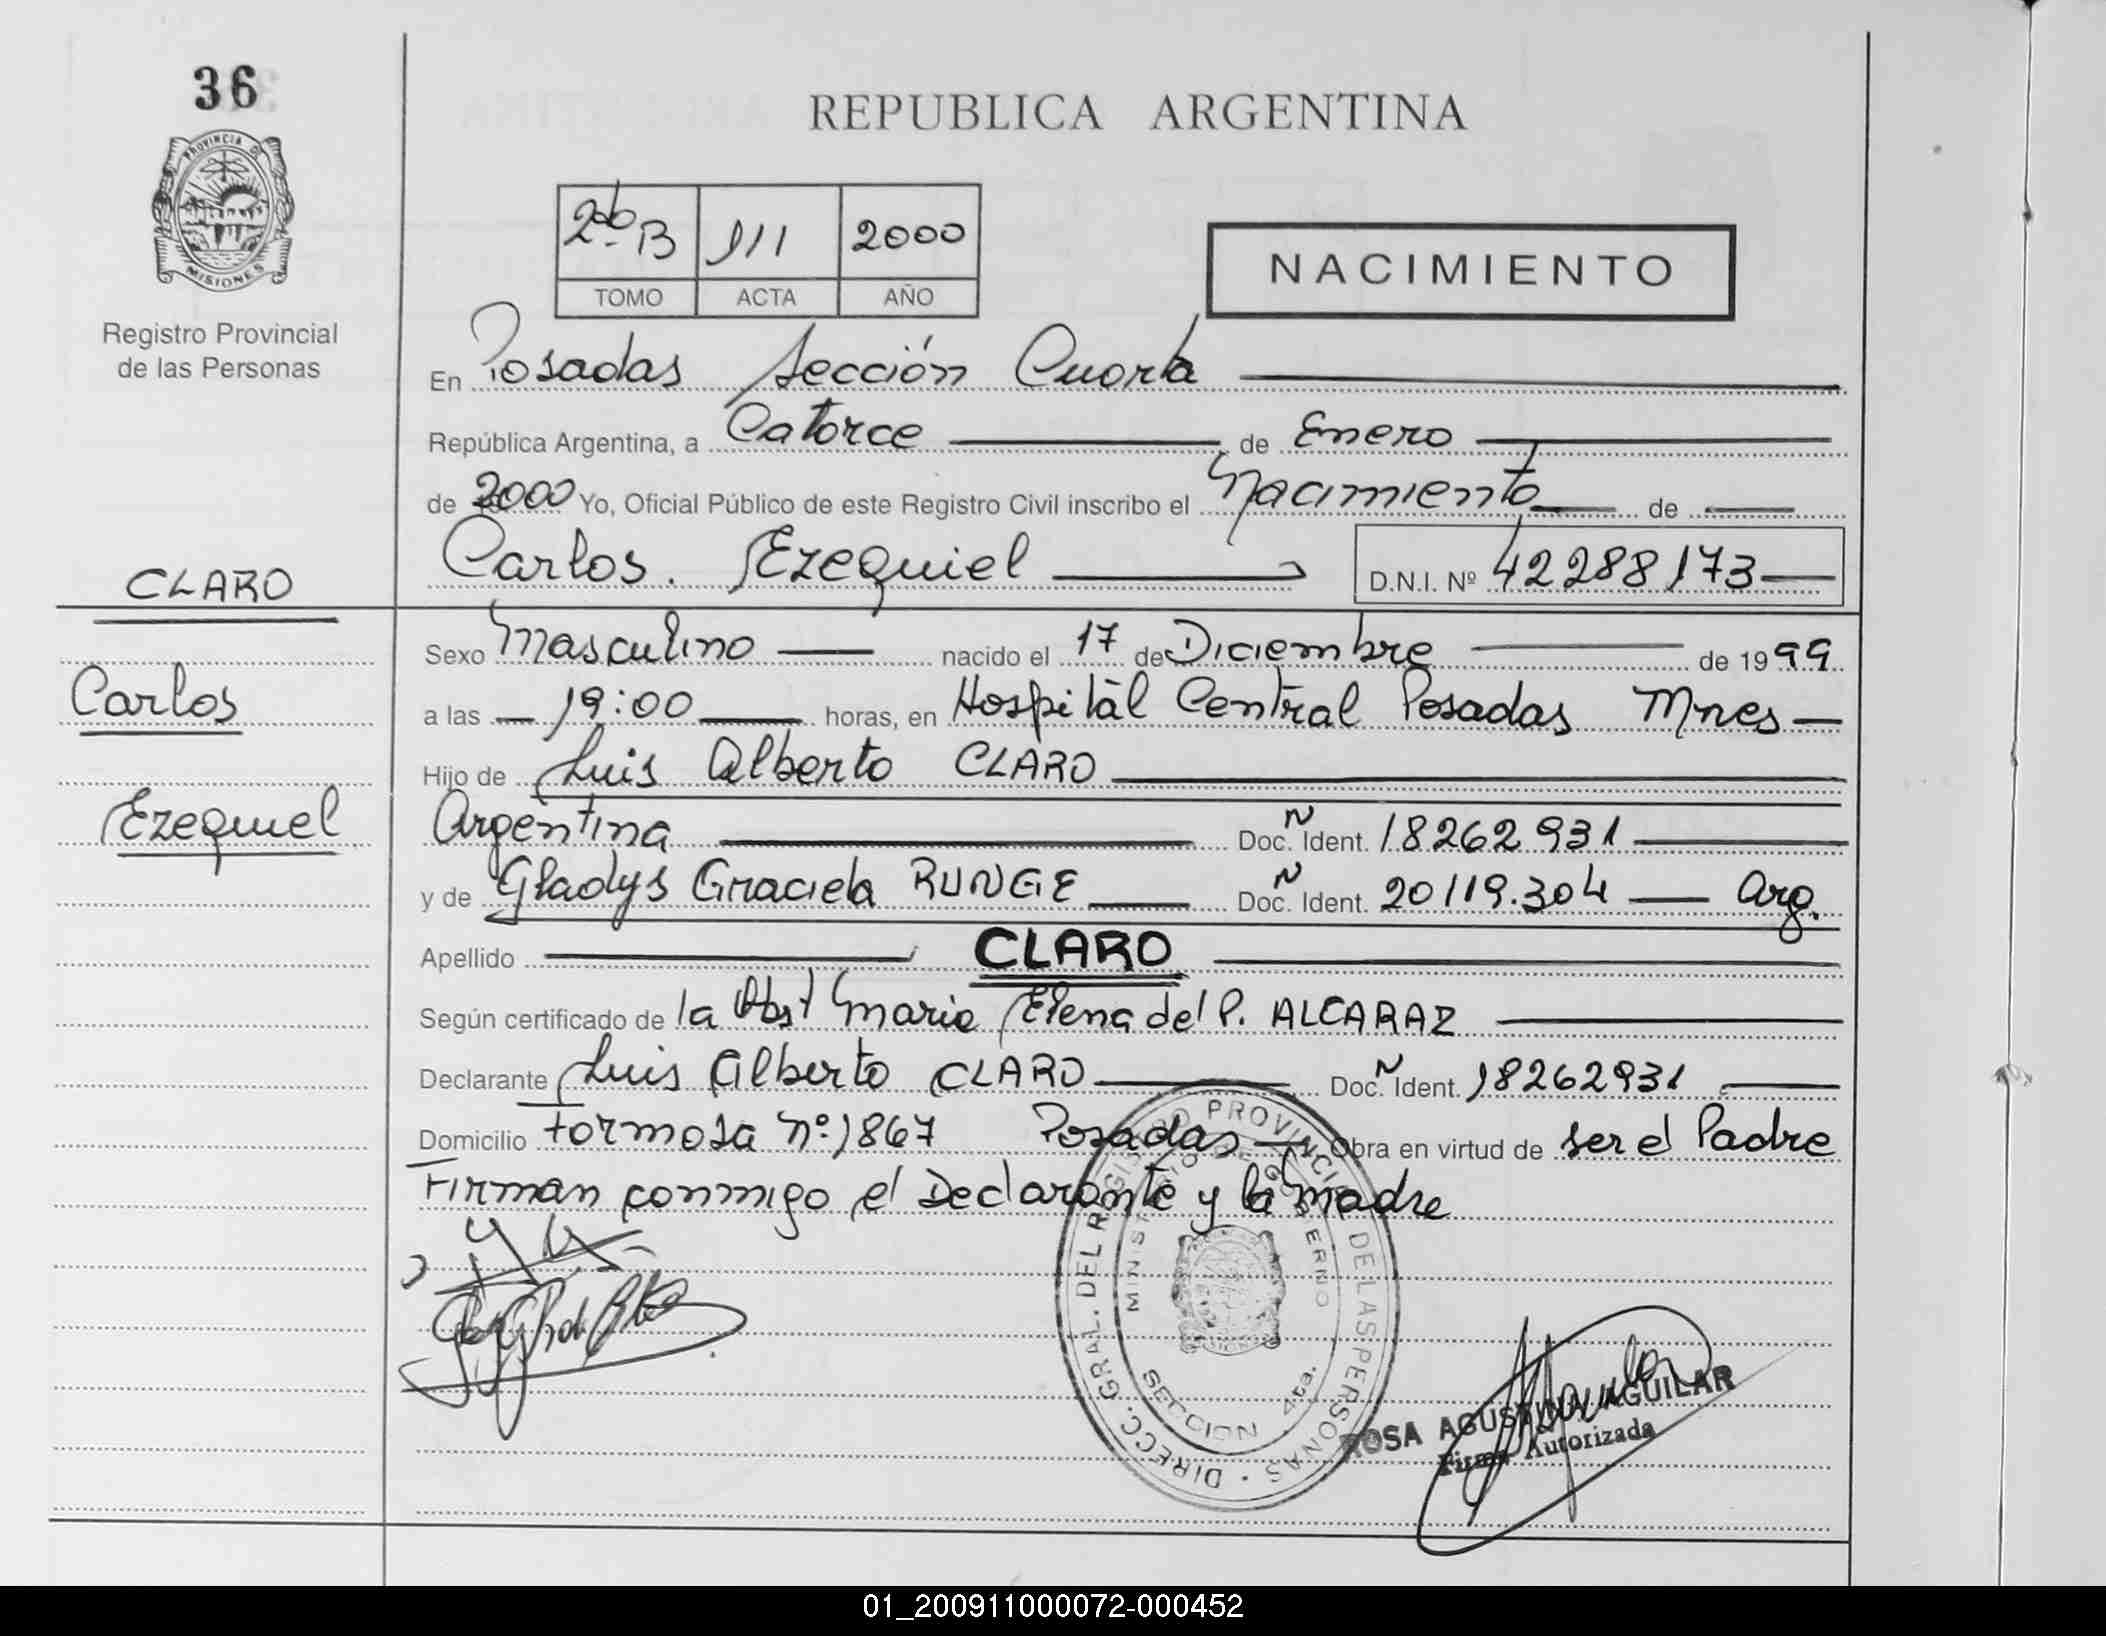 36
PROVINCIA DE
MISIONES
Registro Provincial
de las Personas
REPUBLICA ARGENTINA
2000
TOMO ACTA AÑO
NACIMIENTO
En Posadas Sección Cuarta
República Argentina, a Catorce de Enero
de 2000 Yo, Oficial Público de este Registro Civil inscribo el Nacimiento de
Carlos Ezequiel D.N.I. Nº 42288173
CLARO
Carlos
Ezequiel
Sexo Masculino nacido el 17 de Diciembre de 1999
a las 19:00 horas, en Hospital Central Posadas Mnes
Hijo de Luis Alberto CLARO
Argentina Doc. Ident. 18262931
y de Gladys Graciela RUNGE Doc. Ident. 20119.304 Arg.
Apellido CLARO
Según certificado de la Obst Maria Elena del P. ALCARAZ
Declarante Luis Alberto CLARO Doc. Ident. 18262931
Domicilio Formosa Nº 1867 Posadas Obra en virtud de ser el Padre
Firman conmigo el Declarante y la madre
DIRECC. GRAL. DEL REGISTRO PROVINCIAL DE LAS PERSONAS
MINISTERIO DE GOBIERNO
SECCION 4ta.
ROSA AGUSTINA AGUILAR
Firma Autorizada
01_200911000072-000452